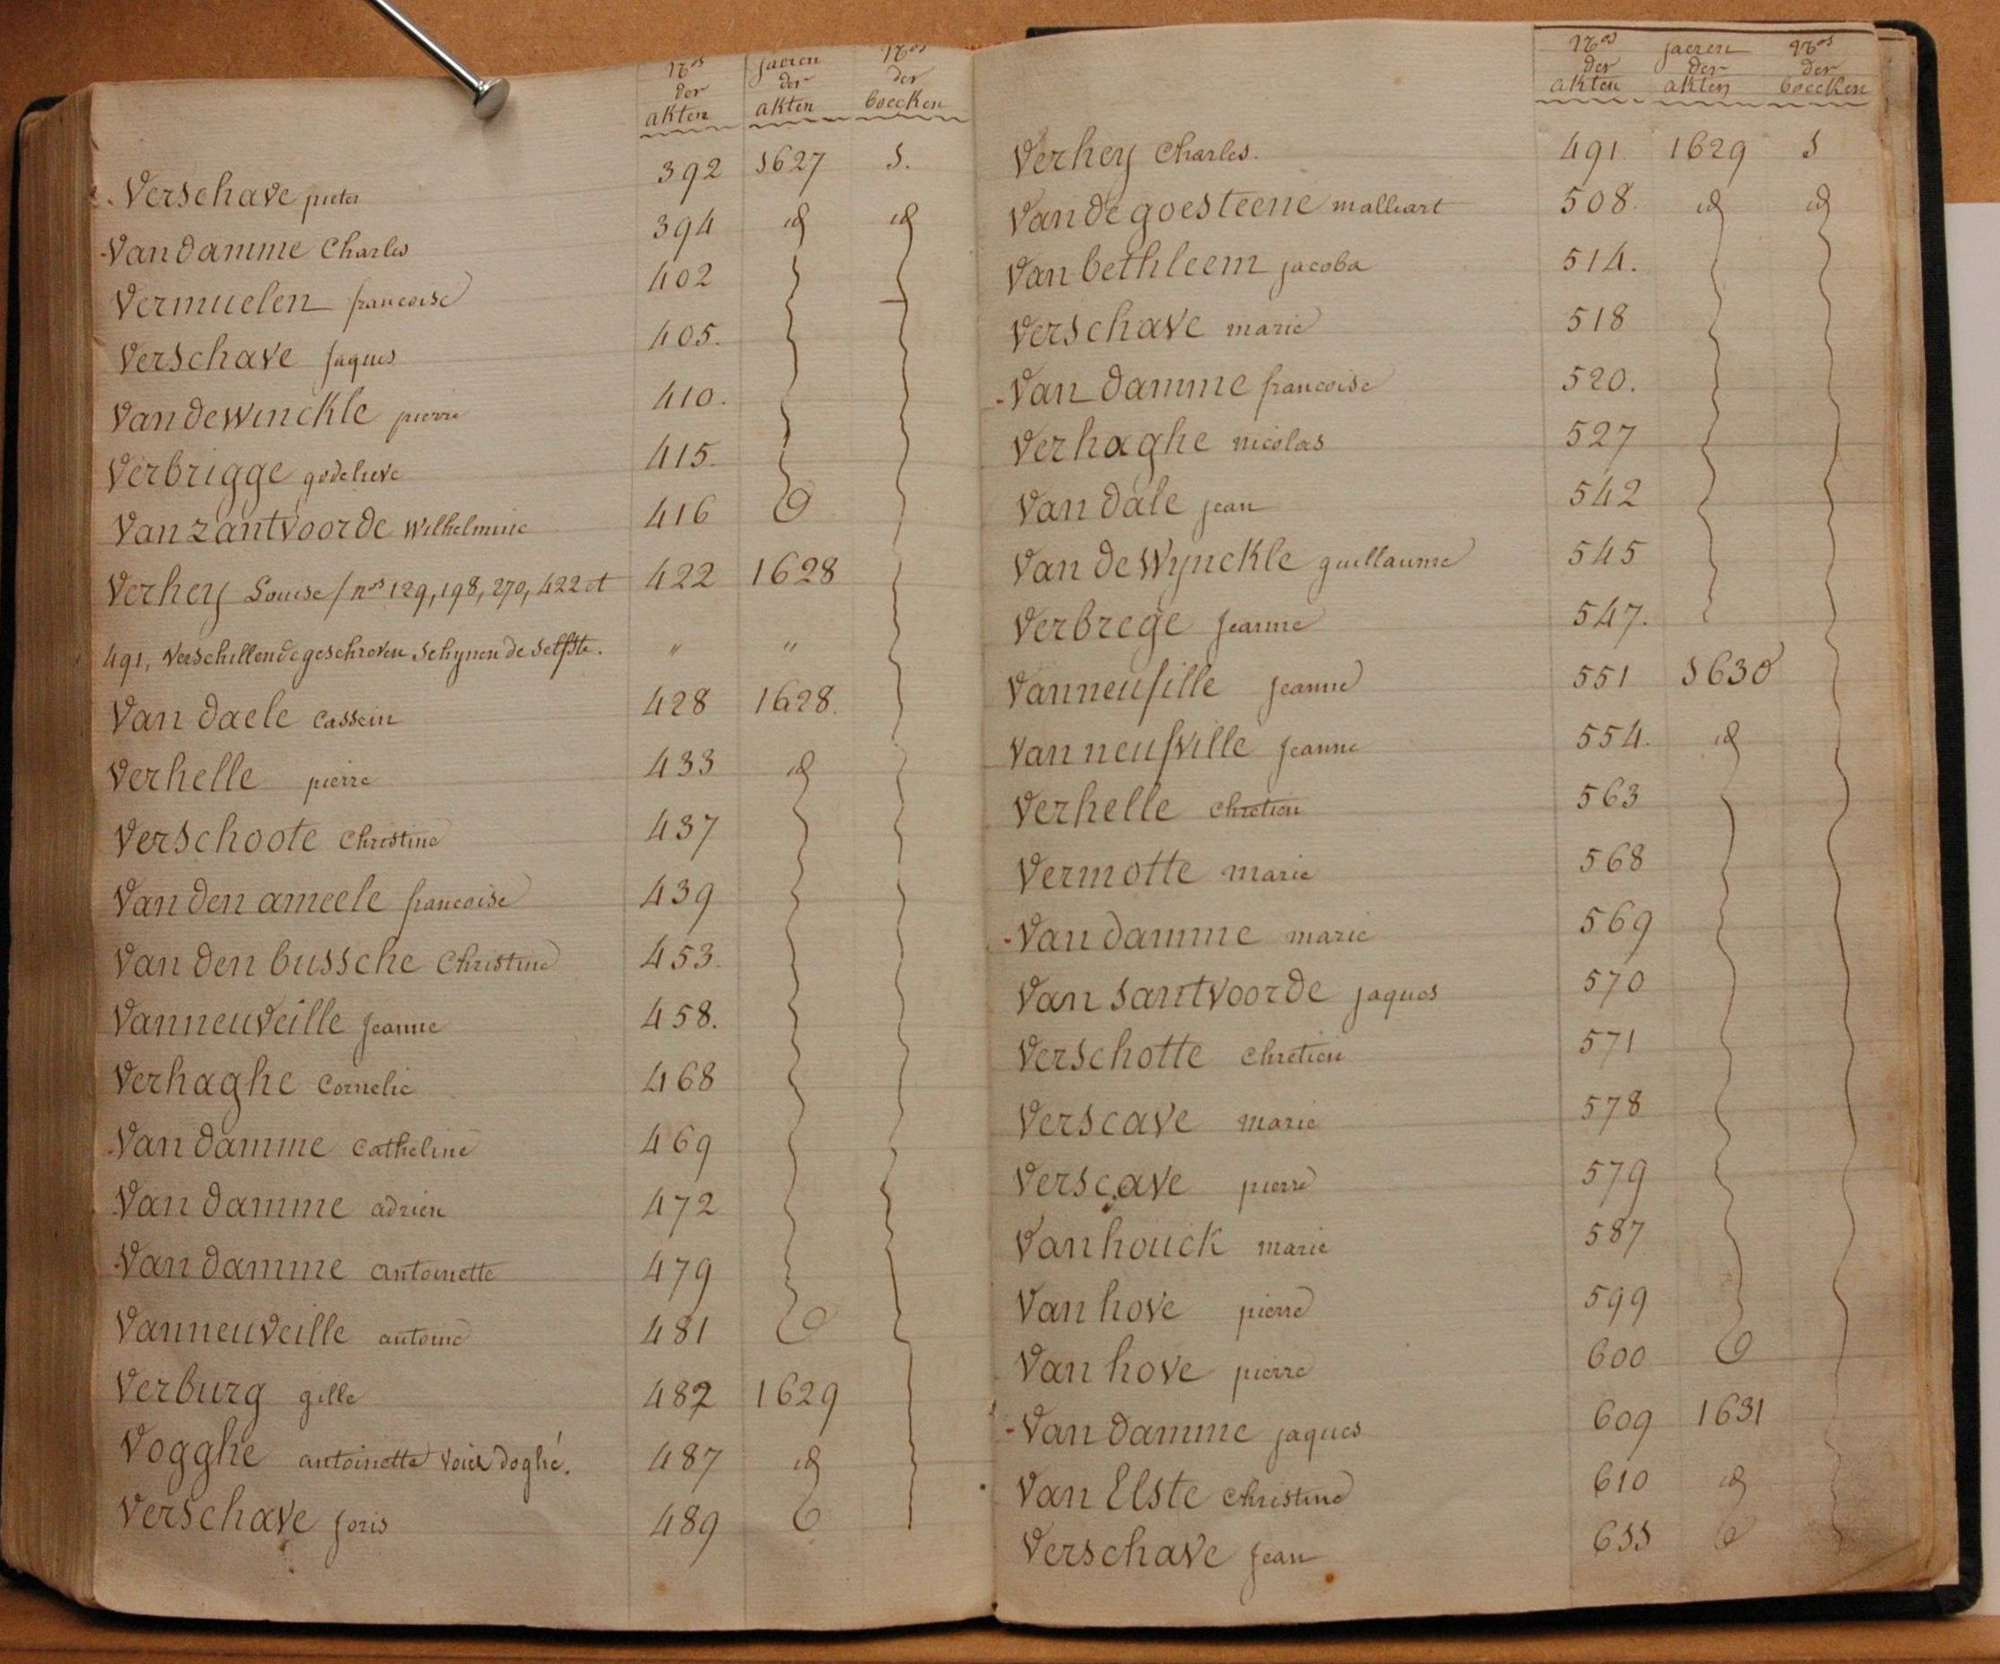 Nos der akten | jaeren der akten | Nos der boecken
Verschave pieter 392 1627 1.
Van damme Charles 394 id id
Vermuelen francoise 402
Verschave Jaques 405.
Van de winckle pierre 410.
Verbrigge godelieve 415.
Van zantvoorde Wilhelmine 416
Verhey Louise / nos 129, 198, 270, 422 et 422 1628
491, Verschillende geschreven Schynen de selfste. " "
Van daele cassein 428 1628.
Verhelle pierre 433 id
Verschoote Christine 437
Van den ameele francoise 439
Van den bussche Christine 453.
Vanneuveille Jeanne 458.
Verhaghe Cornelie 468
Van damme Catheline 469
Van damme adrien 472
Van damme antoinette 479
Vanneuveille antoine 481
Verburg gille 482 1629
Vogghe antoinette voiex doghé. 487 id
Verschave Joris 489
Nos der akten | jaeren der akten | Nos der boecken
Verhey Charles. 491 1629 1
Van de goesteene malliart 508. id id
Van bethleem jacoba 514.
Verschave marie 518
Van damme francoise 520.
Verhaghe nicolas 527
Van dale jean 542
Van de Wynckle guillaume 545
Verbrege Jeanne 547.
Vanneufille Jeanne 551 1630
Vanneufville Jeanne 554. id
Verhelle Chretien 563
Vermotte marie 568
Van damme marie 569
Van Santvoorde Jaques 570
Verschotte Chretien 571
Verscave marie 578
Verscave pierre 579
Van houck marie 587
Van hove pierre 599
Van hove pierre 600
Van damme jaques 609 1631
Van Elste Christine 610 id
Verschave Jean 611